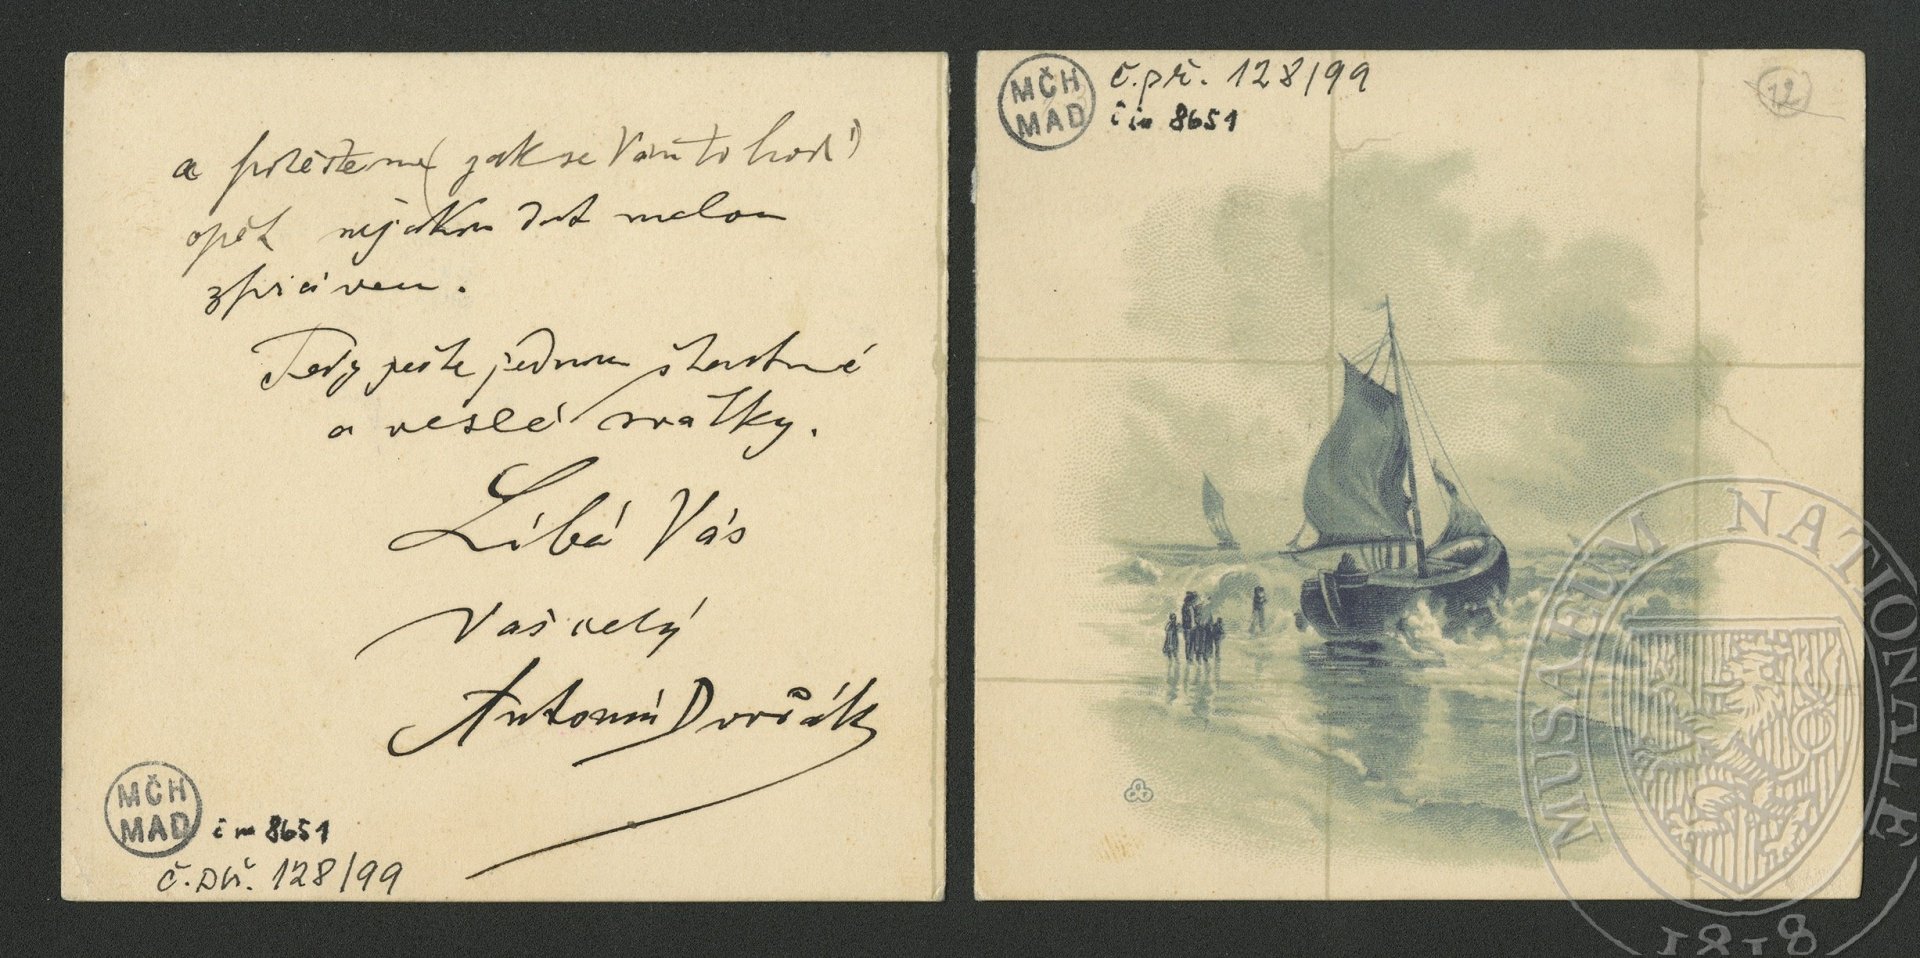 a potěšte mne (jak se Vám to hodí)
opět nějakou dst malou
zprávou.
Tedy ještě jednou šťastné
a veselé svátky.
Líbá Vás
Váš celý
Antonín Dvořák
MČH
MAD
č in 8651
č. př. 128/99
MČH
MAD
č. př. 128/99
č in 8651
12
MUSAEUM NATIONALE
1818